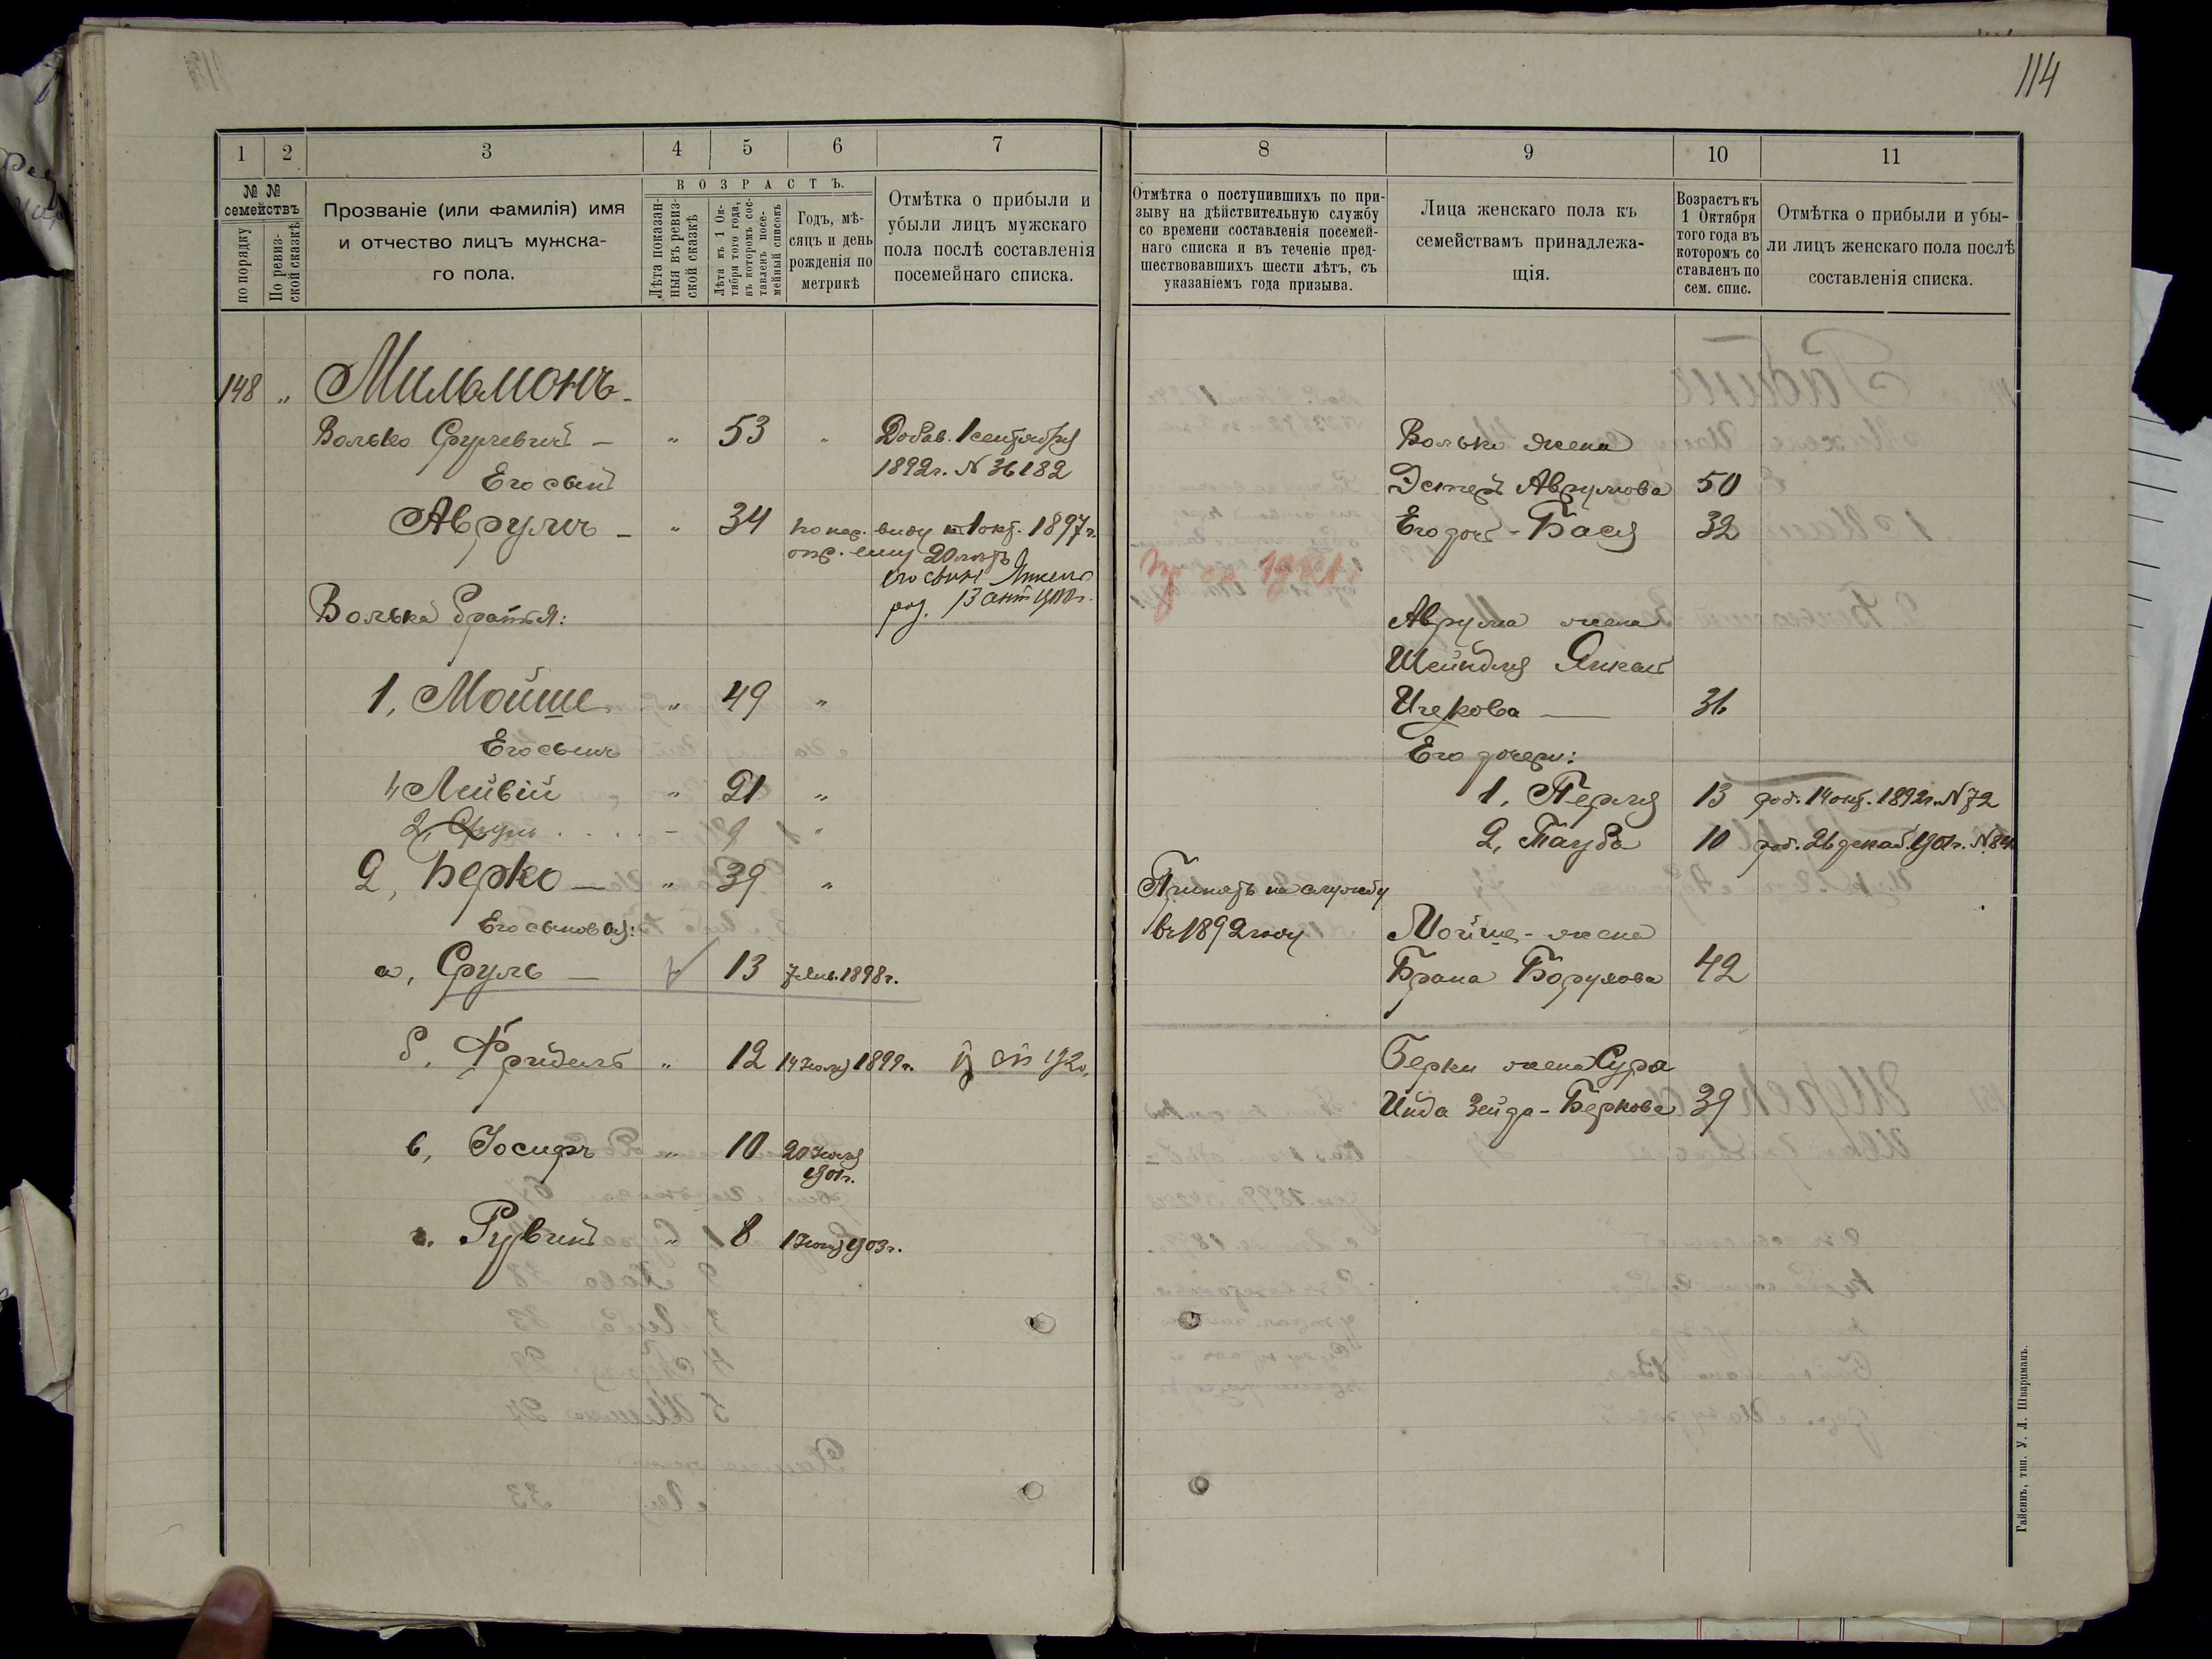 114
1 2 3 4 5 6 7
№ №
семействъ
по порядку
По ревиз-
ской сказкѣ
Прозваніе (или фамилія) имя
и отчество лицъ мужска-
го пола.
ВОЗРАСТЪ.
Лѣта показан-
ныя въ ревиз-
ской сказкѣ
Лѣта къ 1 Ок-
тября того года,
въ которомъ сос-
тавленъ посе-
мейный списокъ
Годъ, мѣ-
сяцъ и день
рожденія по
метрикѣ
Отмѣтка о прибыли и
убыли лицъ мужскаго
пола послѣ составленія
посемейнаго списка.
148 „ Мильмонъ
Волько Срулевичъ — „ 53 „ Добав. 1 сентября
1892 г. N 36182
Его сынъ
Аврумъ — „ 34 по нар. виду к 1 окт. 1897 г.
опр. ему 20 лѣтъ
его сынъ
род. 13
Волька братья:
1, Мойше „ 49 „
Его сынъ
1, Лейвій „ 21 „
2, Сруль . . . . – 9 „
2, Берко — „ 39 „
Его сыновья:
а, Сруль — „ 13 7 Янв. 1898 г.
б, Фридель „ 12 14 1899 г.
в, Іосифъ „ 10 20
1901 г.
г. Рувинъ „ 8 1 1903 г.
8 9 10 11
Отмѣтка о поступившихъ по при-
зыву на дѣйствительную службу
со времени составленія посемей-
наго списка и въ теченіе пред-
шествовавшихъ шести лѣтъ, съ
указаніемъ года призыва.
Лица женскаго пола къ
семействамъ принадлежа-
щія.
Возрастъ къ
1 Октября
того года въ
которомъ со
ставленъ по
сем. спис.
Отмѣтка о прибыли и убы-
ли лицъ женскаго пола послѣ
составленія списка.
Волько жена
Эстеръ Аврумова 50
Его дочь - Бася 32
Аврума жена
Шейндля Янкель
Ицкова — 31
Его дочери:
1, Перля 13 род. 14 окт. 1892 г. N 72
2, Тауба 10 род. 26 декаб. 1901 г. N 84
Принятъ на службу
въ 1892 году
Мойше - жена
Брана Борухова 42
Берки жена Сура
Инда Зейда - Беркова 39
Гайсинъ, тип. У. Л. Шварцманъ.